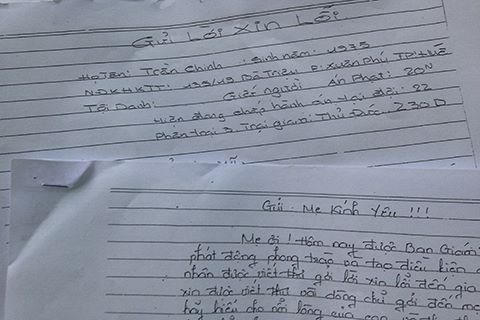 Gửi Lời Xin Lỗi
Họ Tên: Trần Chinh : Sinh năm: 1935
NĐKHKTT: 499/49 Bà Triệu P: Xuân Phú TP: Huế
Tội Danh: Giết người Án Phạt: 20N
Hiện đang chấp hành án tại đội: 22
Phân loại 3 Trại giam: Thủ Đức Z30D
Gửi: Mẹ Kính Yêu !!!
Mẹ ơi! Hôm nay được Ban Giám
phát động phong trào và tạo điều kiện
nhân được viết thư gởi lời xin lỗi đến gia
xin được viết thư vài dòng chữ gởi đến mẹ
hãy hiểu cho nỗi lòng của con